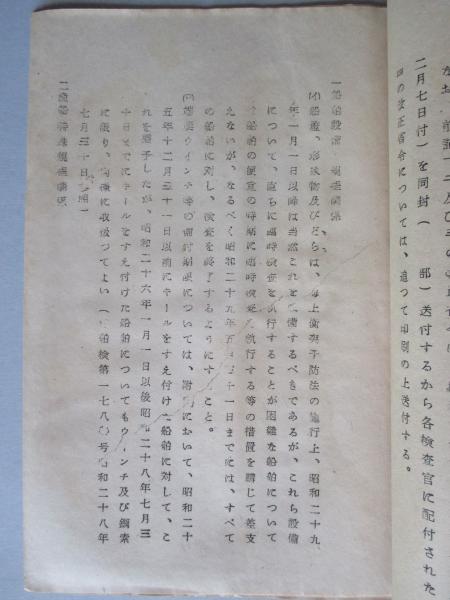 二月七日付)を同封( 部)送付するから各検査官に配付された
の改正省令については、追つて印刷の上送付する。
一船舶設備 関係
及びどらは、海上衝突予防法の施行上、昭和二十九
年一月一日以降は当然これを備するべきであるが、これら設備
について、直ちに臨時検査を執行することが困難な船舶について
船舶の便宜の時期に臨時検査を執行する等の措置を講じて差支
えないが、なるべく昭和二十九年五月三十一日までには、すべて
の船舶に対し、検査を終了するようにすること。
ウインチ等の 制限については、附則において、昭和二十
五年十二月三十一日以前にキールをすえ付けた船舶に対して、こ
れを 予したが、昭和二十六年一月一日以後昭和二十八年七月三
十日までにキールをすえ付けた船舶についてもウインチ及び鋼索
に限り、同様に取扱つてよい(船舶検第一七八〇号昭和二十八年
七月三十日